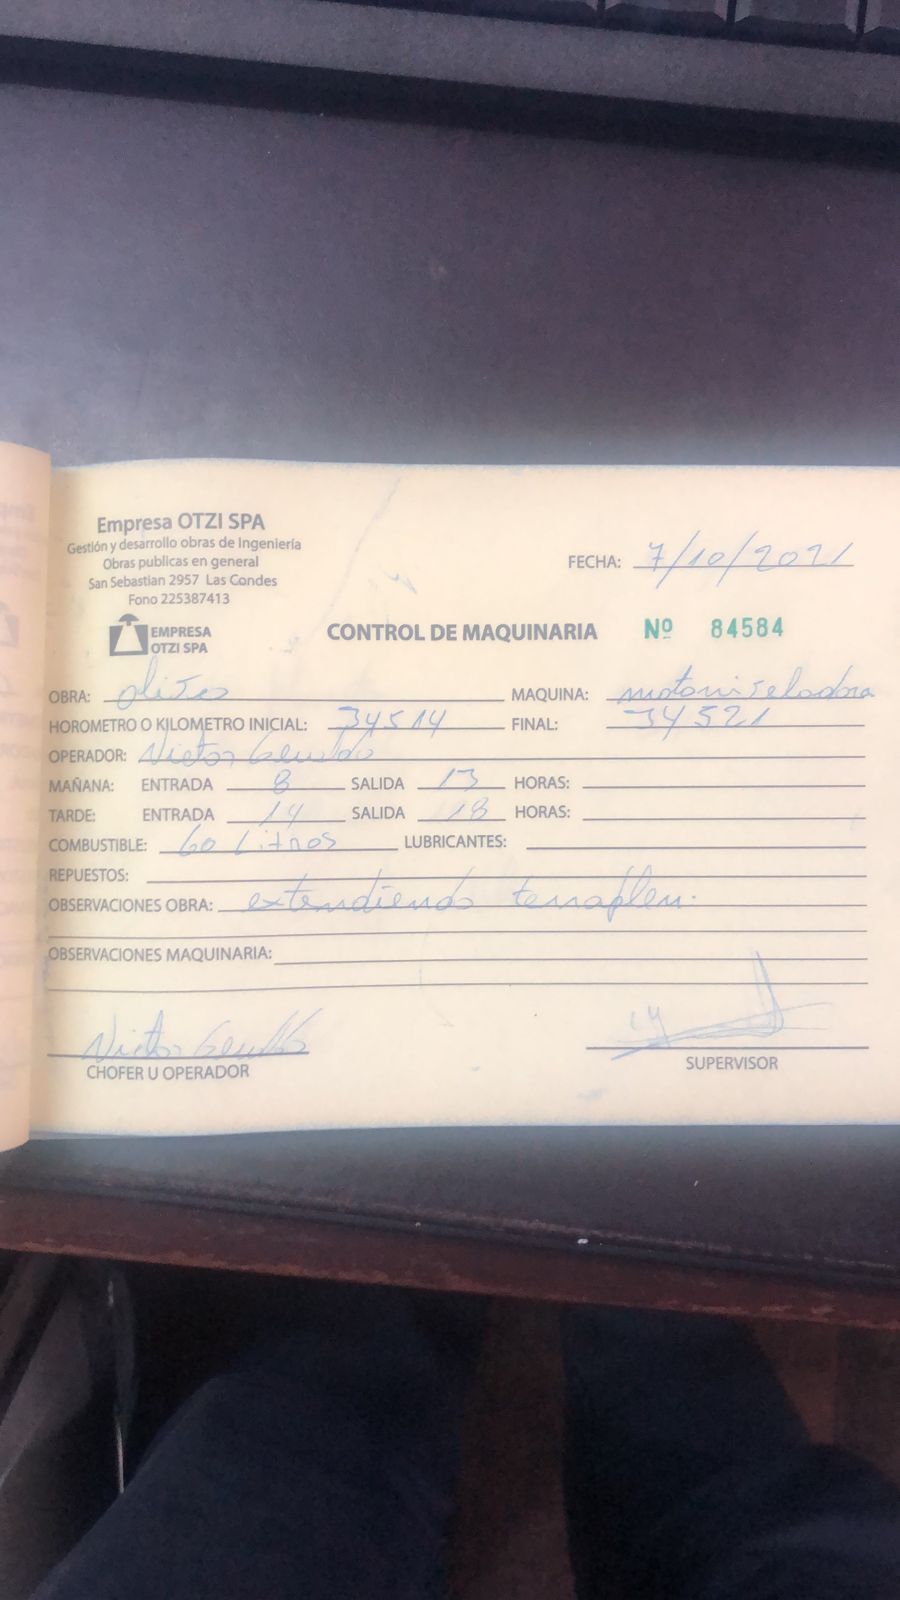 Empresa OTZI SPA
Gestión y desarrollo obras de Ingeniería
Obras publicas en general
San Sebastian 2957 Las Condes
Fono 225387413
EMPRESA
OTZI SPA
FECHA: 7/10/2021
CONTROL DE MAQUINARIA Nº 84584
OBRA: MAQUINA: motoniveladora
HOROMETRO O KILOMETRO INICIAL: 34514 FINAL: 34521
OPERADOR: Victor
MAÑANA: ENTRADA 8 SALIDA 13 HORAS:
TARDE: ENTRADA 14 SALIDA 18 HORAS:
COMBUSTIBLE: 60 Litros LUBRICANTES:
REPUESTOS:
OBSERVACIONES OBRA: extendiendo terraplen.
OBSERVACIONES MAQUINARIA:
Victor
CHOFER U OPERADOR
SUPERVISOR